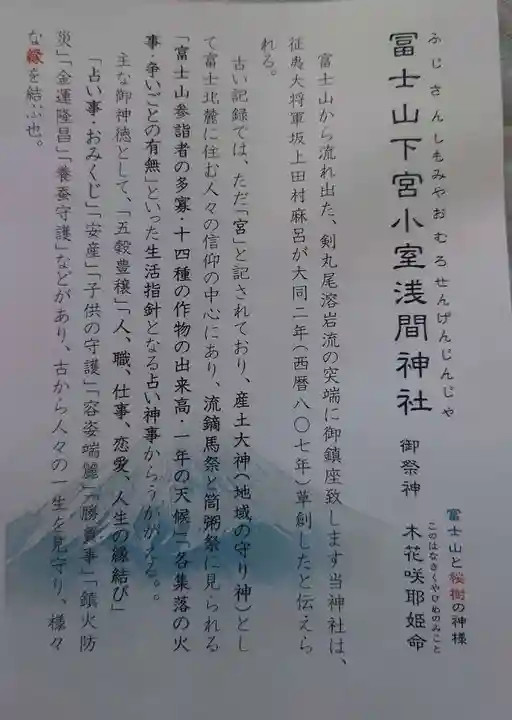 ふじさんしもみやおむろせんげんじんじゃ
冨士山下宮小室浅間神社
御祭神
富士山と桜樹の神様
このはなさくやひめのみこと
木花咲耶姫命
富士山から流れ出た、剣丸尾溶岩流の突端に御鎮座致します当神社は、
征夷大将軍坂上田村麻呂が大同二年(西暦八〇七年)草創したと伝えら
れる。
古い記録では、ただ「宮」と記されており、産土大神(地域の守り神)とし
て富士北麓に住む人々の信仰の中心にあり、流鏑馬祭と筒粥祭に見られる
「富士山参詣者の多寡・十四種の作物の出来高・一年の天候」「各集落の火
事・争いごとの有無」といった生活指針となる占い神事からうかがえる。。
主な御神徳として、「五穀豊穣」「人、職、仕事、恋愛、人生の縁結び」
「占い事・おみくじ」「安産」「子供の守護」「容姿端麗」「勝負事」「鎮火防
災」「金運隆昌」「養蚕守護」などがあり、古から人々の一生を見守り、様々
な縁を結ぶ也。